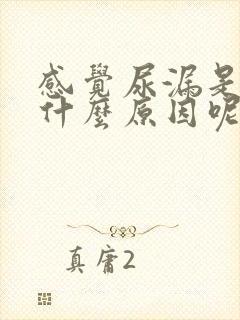 感覺尿漏是
什麼原因呢
真庸2